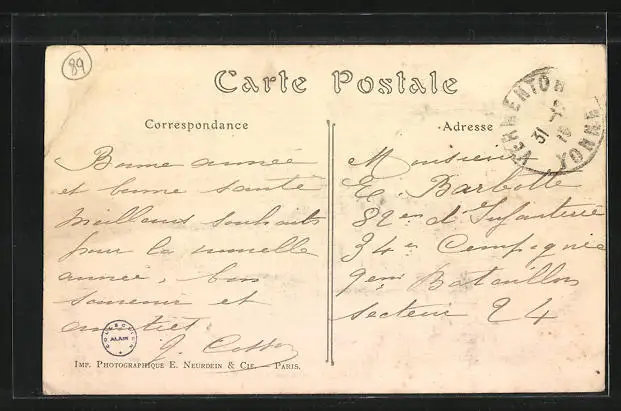 89
Carte Postale
Correspondance
Adresse
VERMENTON
31
YONNE
Bonne année
et bonne santé
meilleurs souhaits
pour la nouvelle
année, bon
souvenir et
amitiés
Monsieur
E. Barbotte
82em d'Infanterie
34em Compagnie
9em Bataillon
Secteur 24
COLLECTION
ALAIN
IMP. PHOTOGRAPHIQUE E. NEURDEIN & CIE. — PARIS.